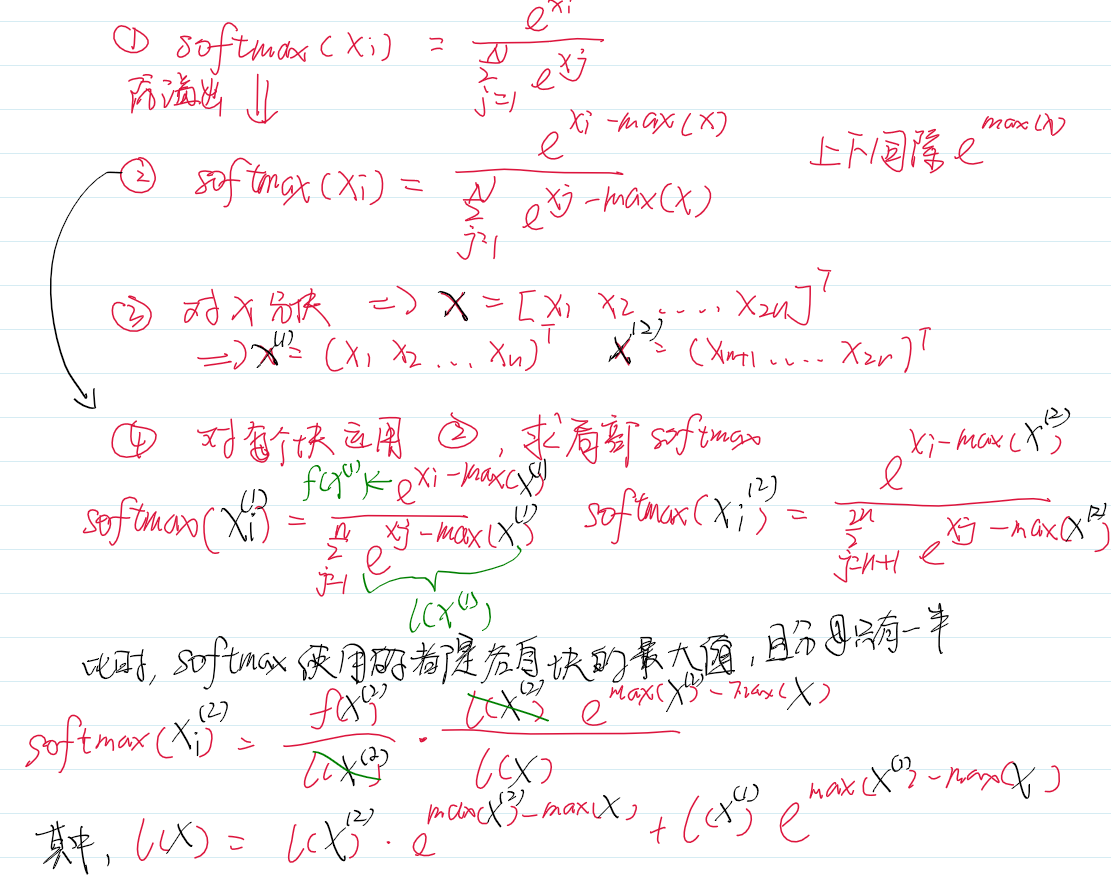 ① softmax(xi) = e^{xi} / Σ_{j=1}^{N} e^{xj}
防溢出 ⇓
② softmax(xi) = e^{xi-max(x)} / Σ_{j=1}^{N} e^{xj-max(x)} 上下同除 e^{max(x)}
③ 对x分块 => x = [x1 x2 .... x2n]^T
=> x^{(1)} = (x1 x2 ... xn)^T x^{(2)} = (xn+1 .... x2n)^T
④ 对每个块运用 ②, 求局部 softmax
softmax(xi^{(1)}) = f(x^{(1)}) ← e^{xi-max(x^{(1)})} / Σ_{j=1}^{n} e^{xj-max(x^{(1)})} softmax(xi^{(2)}) = e^{xi-max(x^{(2)})} / Σ_{j=n+1}^{2n} e^{xj-max(x^{(2)})}
l(x^{(1)})
此时, softmax使用的都是各自块的最大值, 且分母只有一半
softmax(xi^{(2)}) = f(x^{(2)}) / l(x^{(2)}) · l(x^{(2)}) e^{max(x^{(2)})-max(x)} / l(x)
其中, l(x) = l(x^{(2)}) · e^{max(x^{(2)})-max(x)} + l(x^{(1)}) e^{max(x^{(1)})-max(x)}